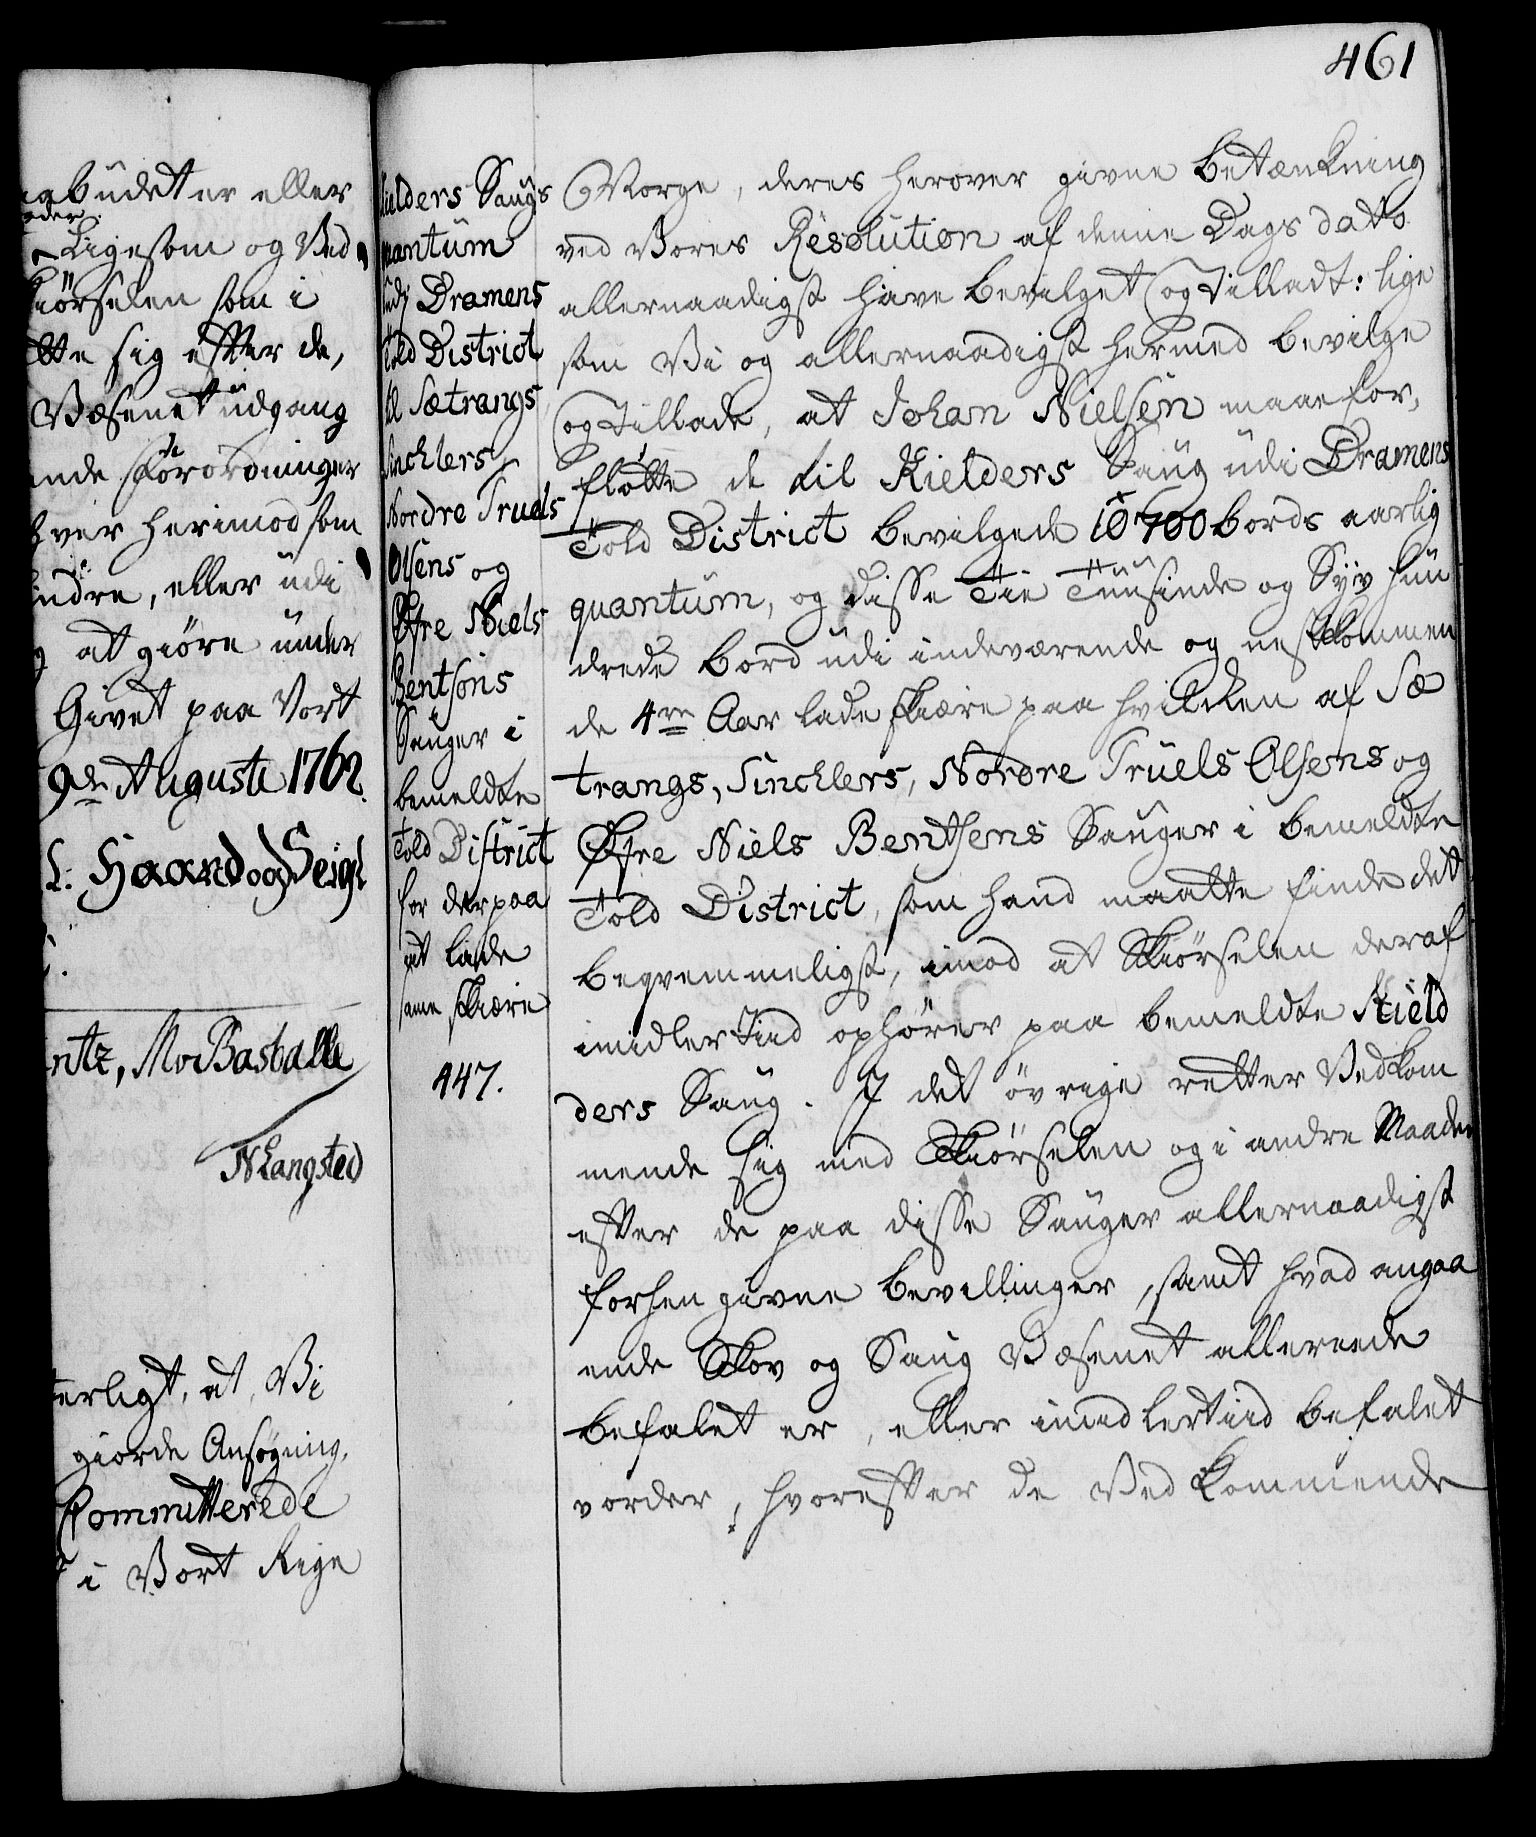 461
budet er eller
Ligesom og Ved
som i
sig efter de,
Væsenet udgang
Forordninger
hver herimod som
eller udi
at giøre under
Givet paa Vort
9de Augusti 1762.
L: Haand og Seigl
ntz, MvBasballe
NLangsted
terligt, at Vi
giorde Ansøgning,
Committerede
i Vort Rige
Kielders Saugs
quantum
udj Dramens
Told District
til Sætrangs
Sincklers
Nordre Truels
Olsens og
Øfre Niels
Bentsöns
Sauger i
bemeldte
Told District
for derpaa
at lade
samme skiære
447.
Norge, deres herover givne Betænkning
ved Vores Resolution af denne Dags dato
allernaadigst have bevilget og tilladt: lige
som Vi og allernaadigst hermed bevilge
og tillade, at Johan Nielsen maae for,
flötte de til Kielders Saug udi Dramens
Told District bevilgede 10700 bords aarlig
quantum, og disse Tie Tuusinde og Syv Hun
drede Bord udi indeværende og nestkommen
de 4re Aar lade skiære paa hvilken af Sæ
trangs, Sincklers, Nordre Truels Olsens og
Øfre Niels Bentsens Sauger i bemeldte
Told District, som hand maatte finde det
beqvemmeligst, imod at Skiørselen deraf
imidlertiid ophører paa bemeldte Kield
ders Saug. I det øvrige retter Vedkom
mende sig med Skiørselen og i andre Maader
efter de paa disse Sauger allernaadigst
forhen givne Bevillinger, samt hvad angaa
ende Skov og Saug Væsenet allerede
befalet er, eller imidlertiid befalet
vorder, hvorefter de Vedkommende